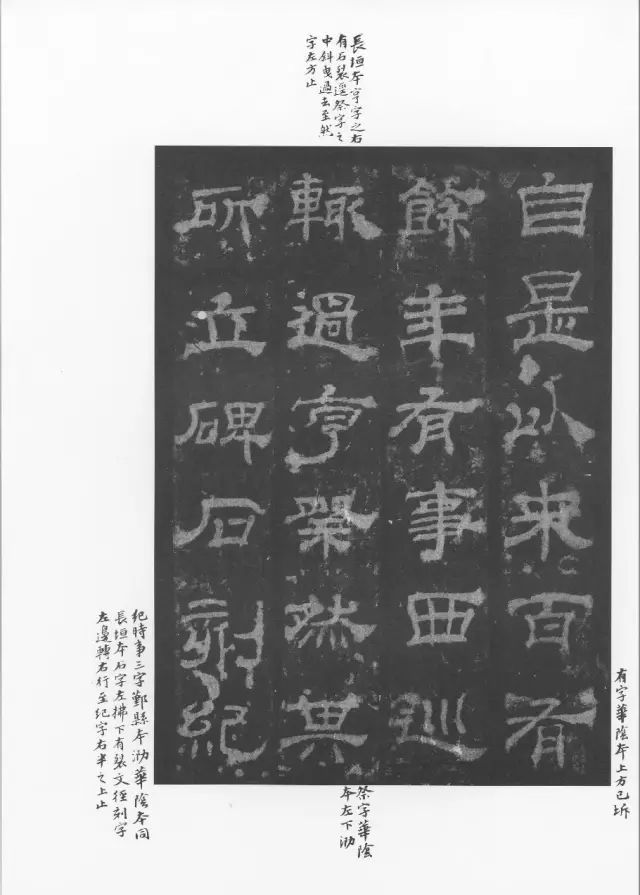 長垣本亨字之右
有石裂祭字之
中斜曳過去至然
字左方止
自是以來百有
餘年有事西巡
輒過亨祭然其
所立碑石刻紀
有字華陰本上方已坼
祭字華陰
本左下泐
紀時事三字鄞縣本泐華陰本同
長垣本石字左拂下有裂文徑刻字
左邊轉右行至紀字右半之上止